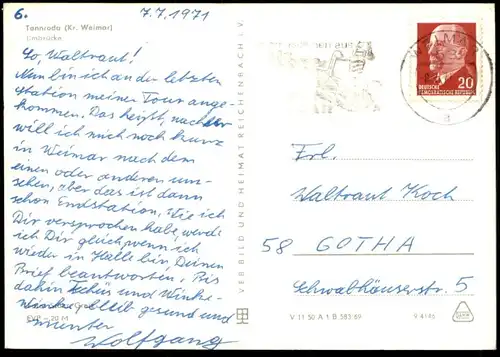 6.
7.7.1971
Tannroda (Kr. Weimar)
Ilmbrücke
So, Waltraut!
Nun bin ich an der letzten
Station meiner Tour ange-
kommen. Das heißt, nachher
will ich mich noch kurz
in Weimar nach dem
einen oder anderen um-
sehen, aber das ist dann
schon Endstation. Wie ich
Dir versprochen habe, werde
ich Dir gleich, wenn ich
wieder in Halle bin Deinen
Brief beantworten. Bis
dahin Tschüs und Winke-
winke, bleib gesund und
munter
Wolfgang
EVP - 20 M
VERBILD UND HEIMAT REICHENBACH I. V.
V 11 50 A 1 B 583/69
9 4145
DEUTSCHE
DEMOKRATISCHE REPUBLIK
20
Frl.
Waltraut Koch
58 GOTHA
Schwabhäuserstr. 5